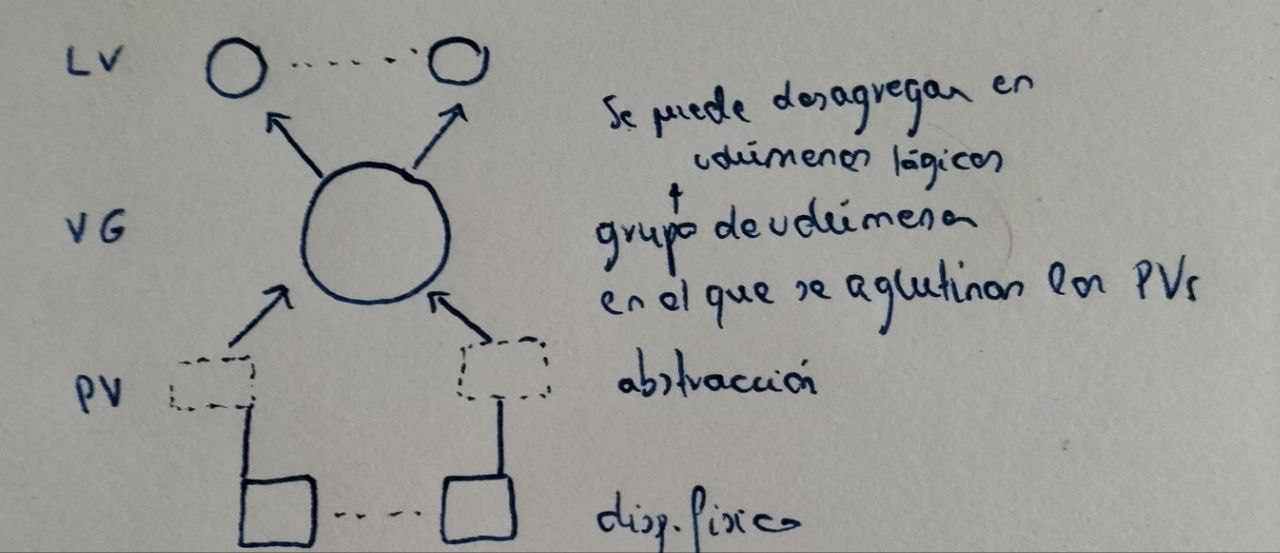 LV
Se puede desagregar en
volúmenes lógicos
VG
grupo de volúmenes
en el que se aglutinan los PVs
PV
abstracción
disp. físico